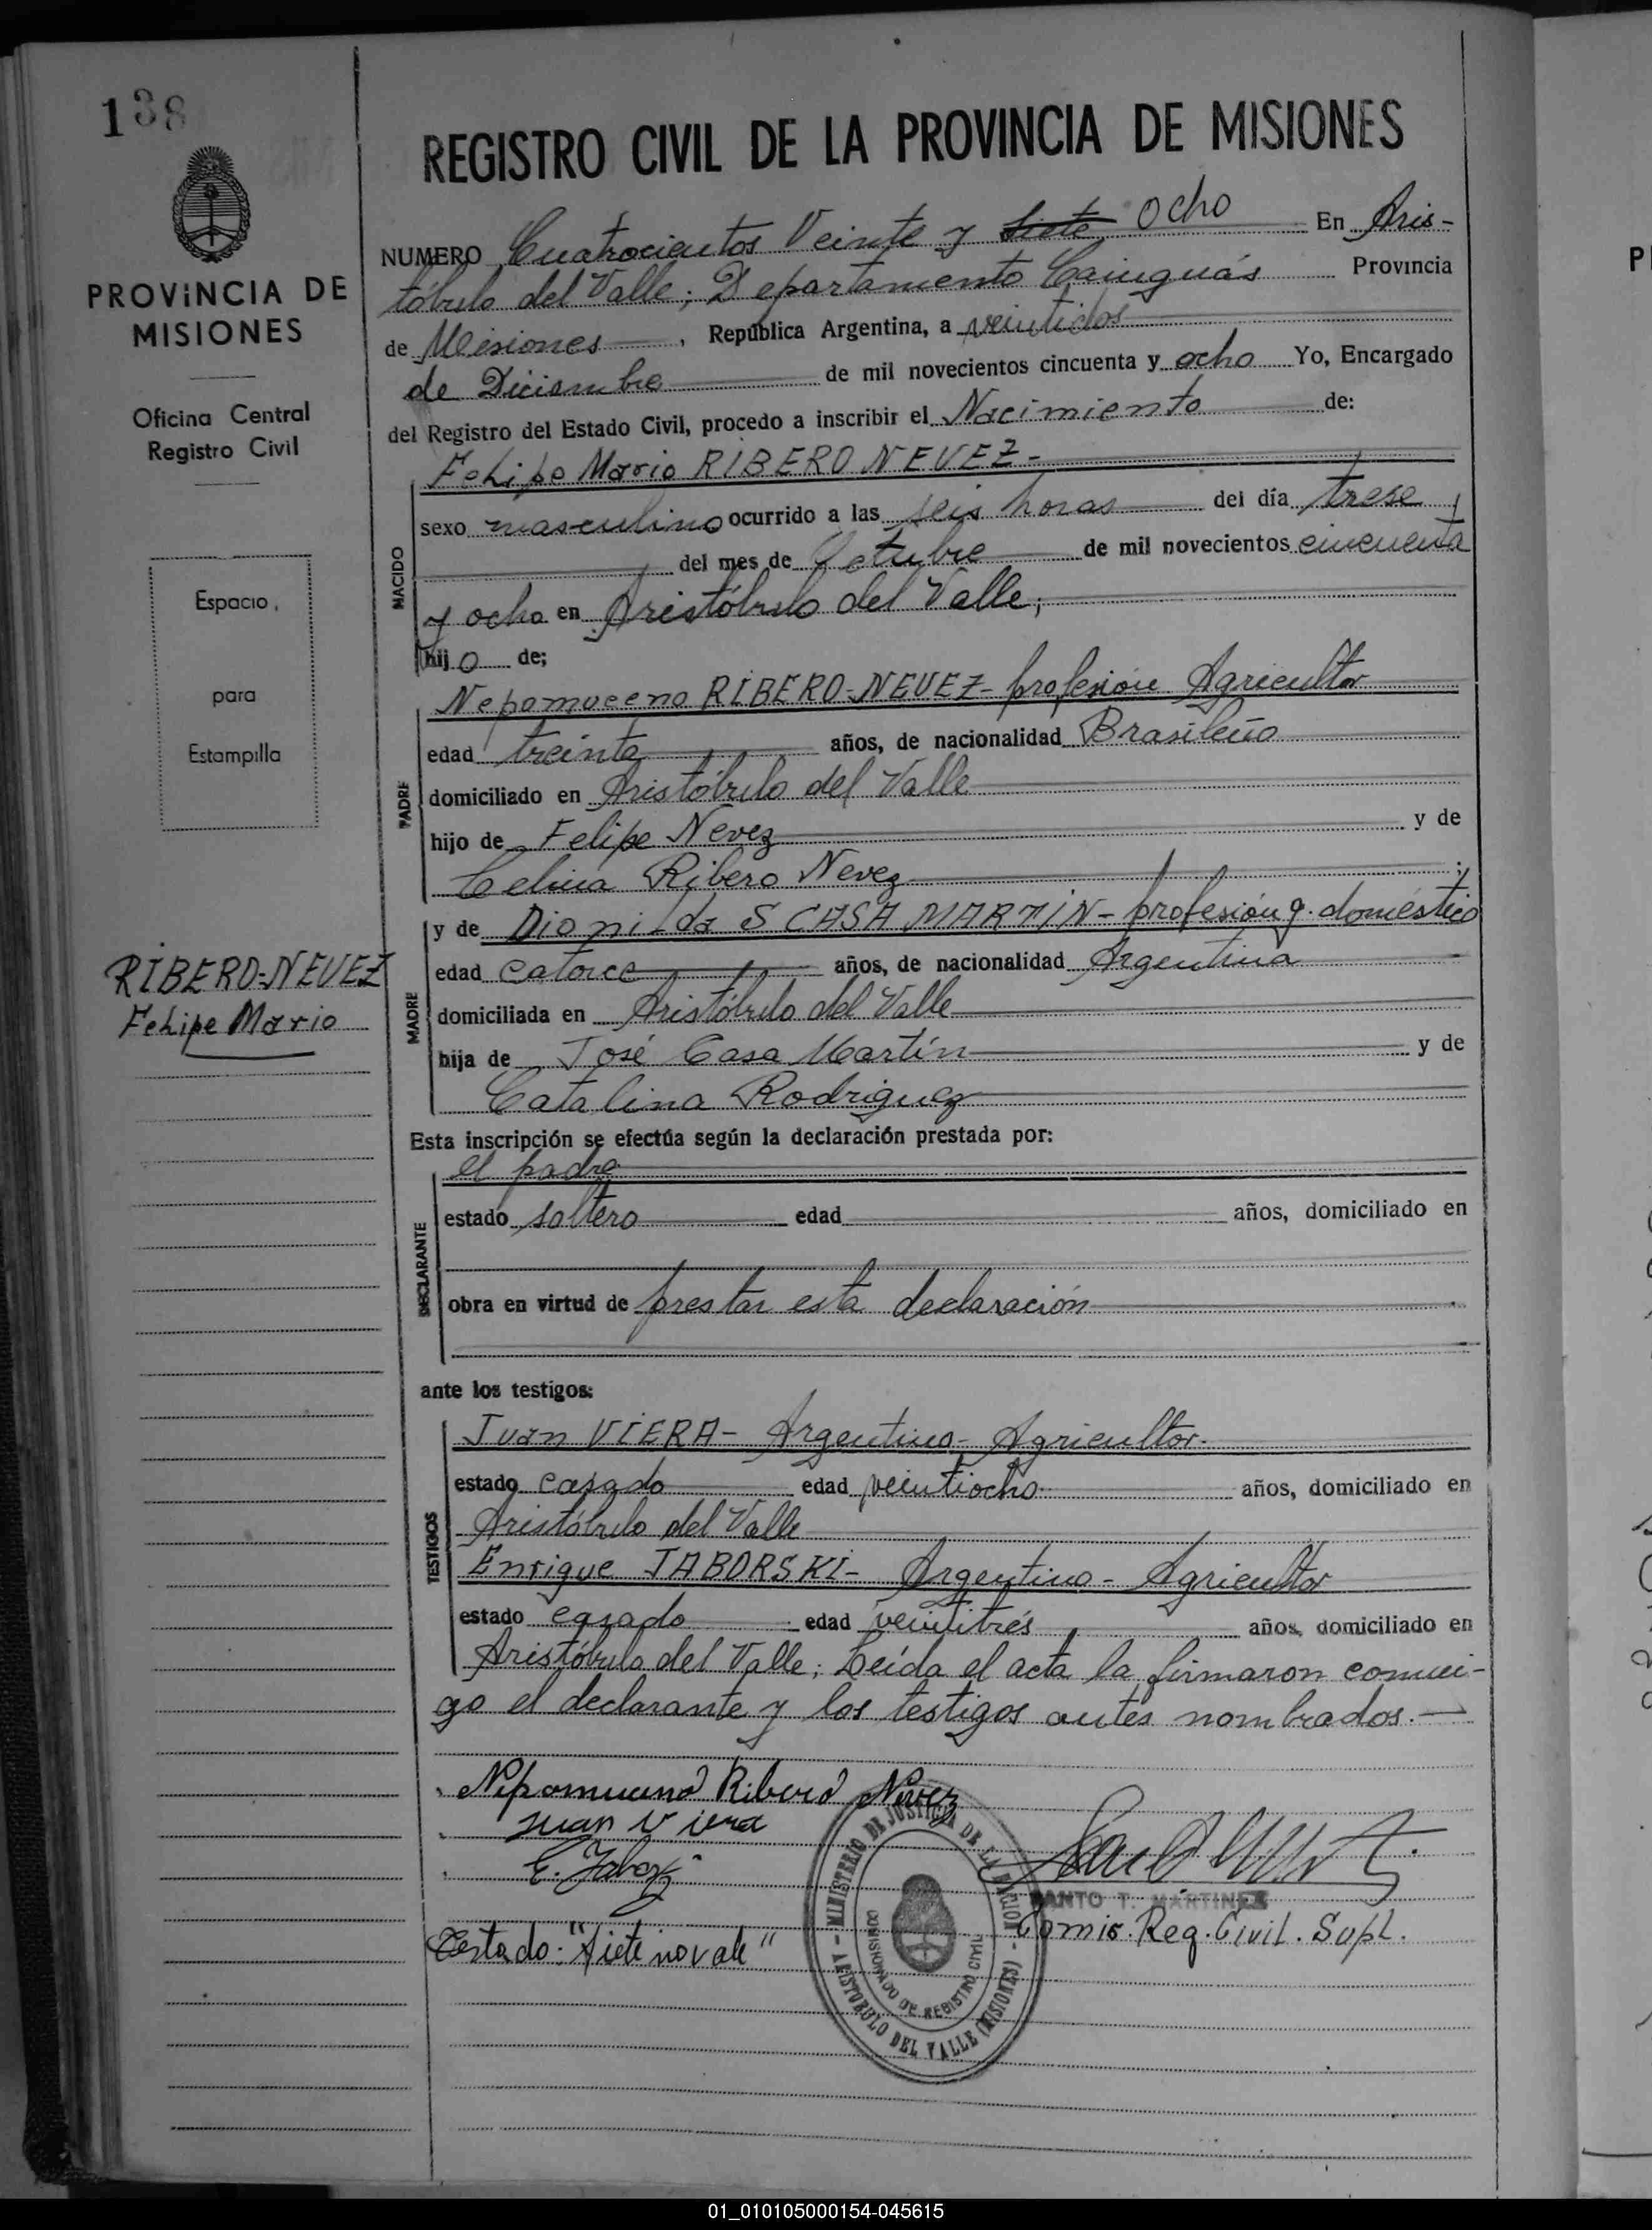 138
REGISTRO CIVIL DE LA PROVINCIA DE MISIONES
PROVINCIA DE
MISIONES
Oficina Central
Registro Civil
Espacio
para
Estampilla
RIBERO-NEVEZ
Felipe Mario
NUMERO Cuatrocientos Veinte y siete ocho En Aris-
tóbulo del Valle; Departamento Cainguás Provincia
de Misiones, República Argentina, a veintidos
de Diciembre de mil novecientos cincuenta y ocho Yo, Encargado
del Registro del Estado Civil, procedo a inscribir el Nacimiento de:
Felipe Mario RIBERO NEVEZ-
NACIDO
sexo masculino ocurrido a las seis horas del día trese
del mes de Octubre de mil novecientos cincuenta
y ocho en Aristóbulo del Valle;
hijo de;
Nepomuceno RIBERO-NEVEZ- profesión Agricultor
PADRE
edad treinta años, de nacionalidad Brasileño
domiciliado en Aristóbulo del Valle
hijo de Felipe Nevez y de
Celina Ribero Nevez
y de Dionilda S CASA MARTIN- profesión q. doméstico
MADRE
edad catorce años, de nacionalidad Argentina
domiciliada en Aristóbulo del Valle
hija de José Casa Martín y de
Catalina Rodriguez
Esta inscripción se efectúa según la declaración prestada por:
el padre
DECLARANTE
estado soltero edad años, domiciliado en
obra en virtud de prestar esta declaración
ante los testigos:
Juan VIERA- Argentino- Agricultor.
TESTIGOS
estado casado edad veintiocho años, domiciliado en
Aristóbulo del Valle
Enrique JABORSKI- Argentino- Agricultor
estado casado edad veintitrés años, domiciliado en
Aristóbulo del Valle; Leída el acta la firmaron conmi-
go el declarante y los testigos antes nombrados.-
Nepomuceno Ribero Nevez
Juan Viera
MINISTERIO DE JUSTICIA DE LA NACION - ARISTOBULO DEL VALLE (MISIONES) -
COMISARIADO DE REGISTRO CIVIL
SANTO T. MARTINEZ
Comis. Reg. Civil. Supl.
Testado: "Siete no vale"
01_010105000154-045615